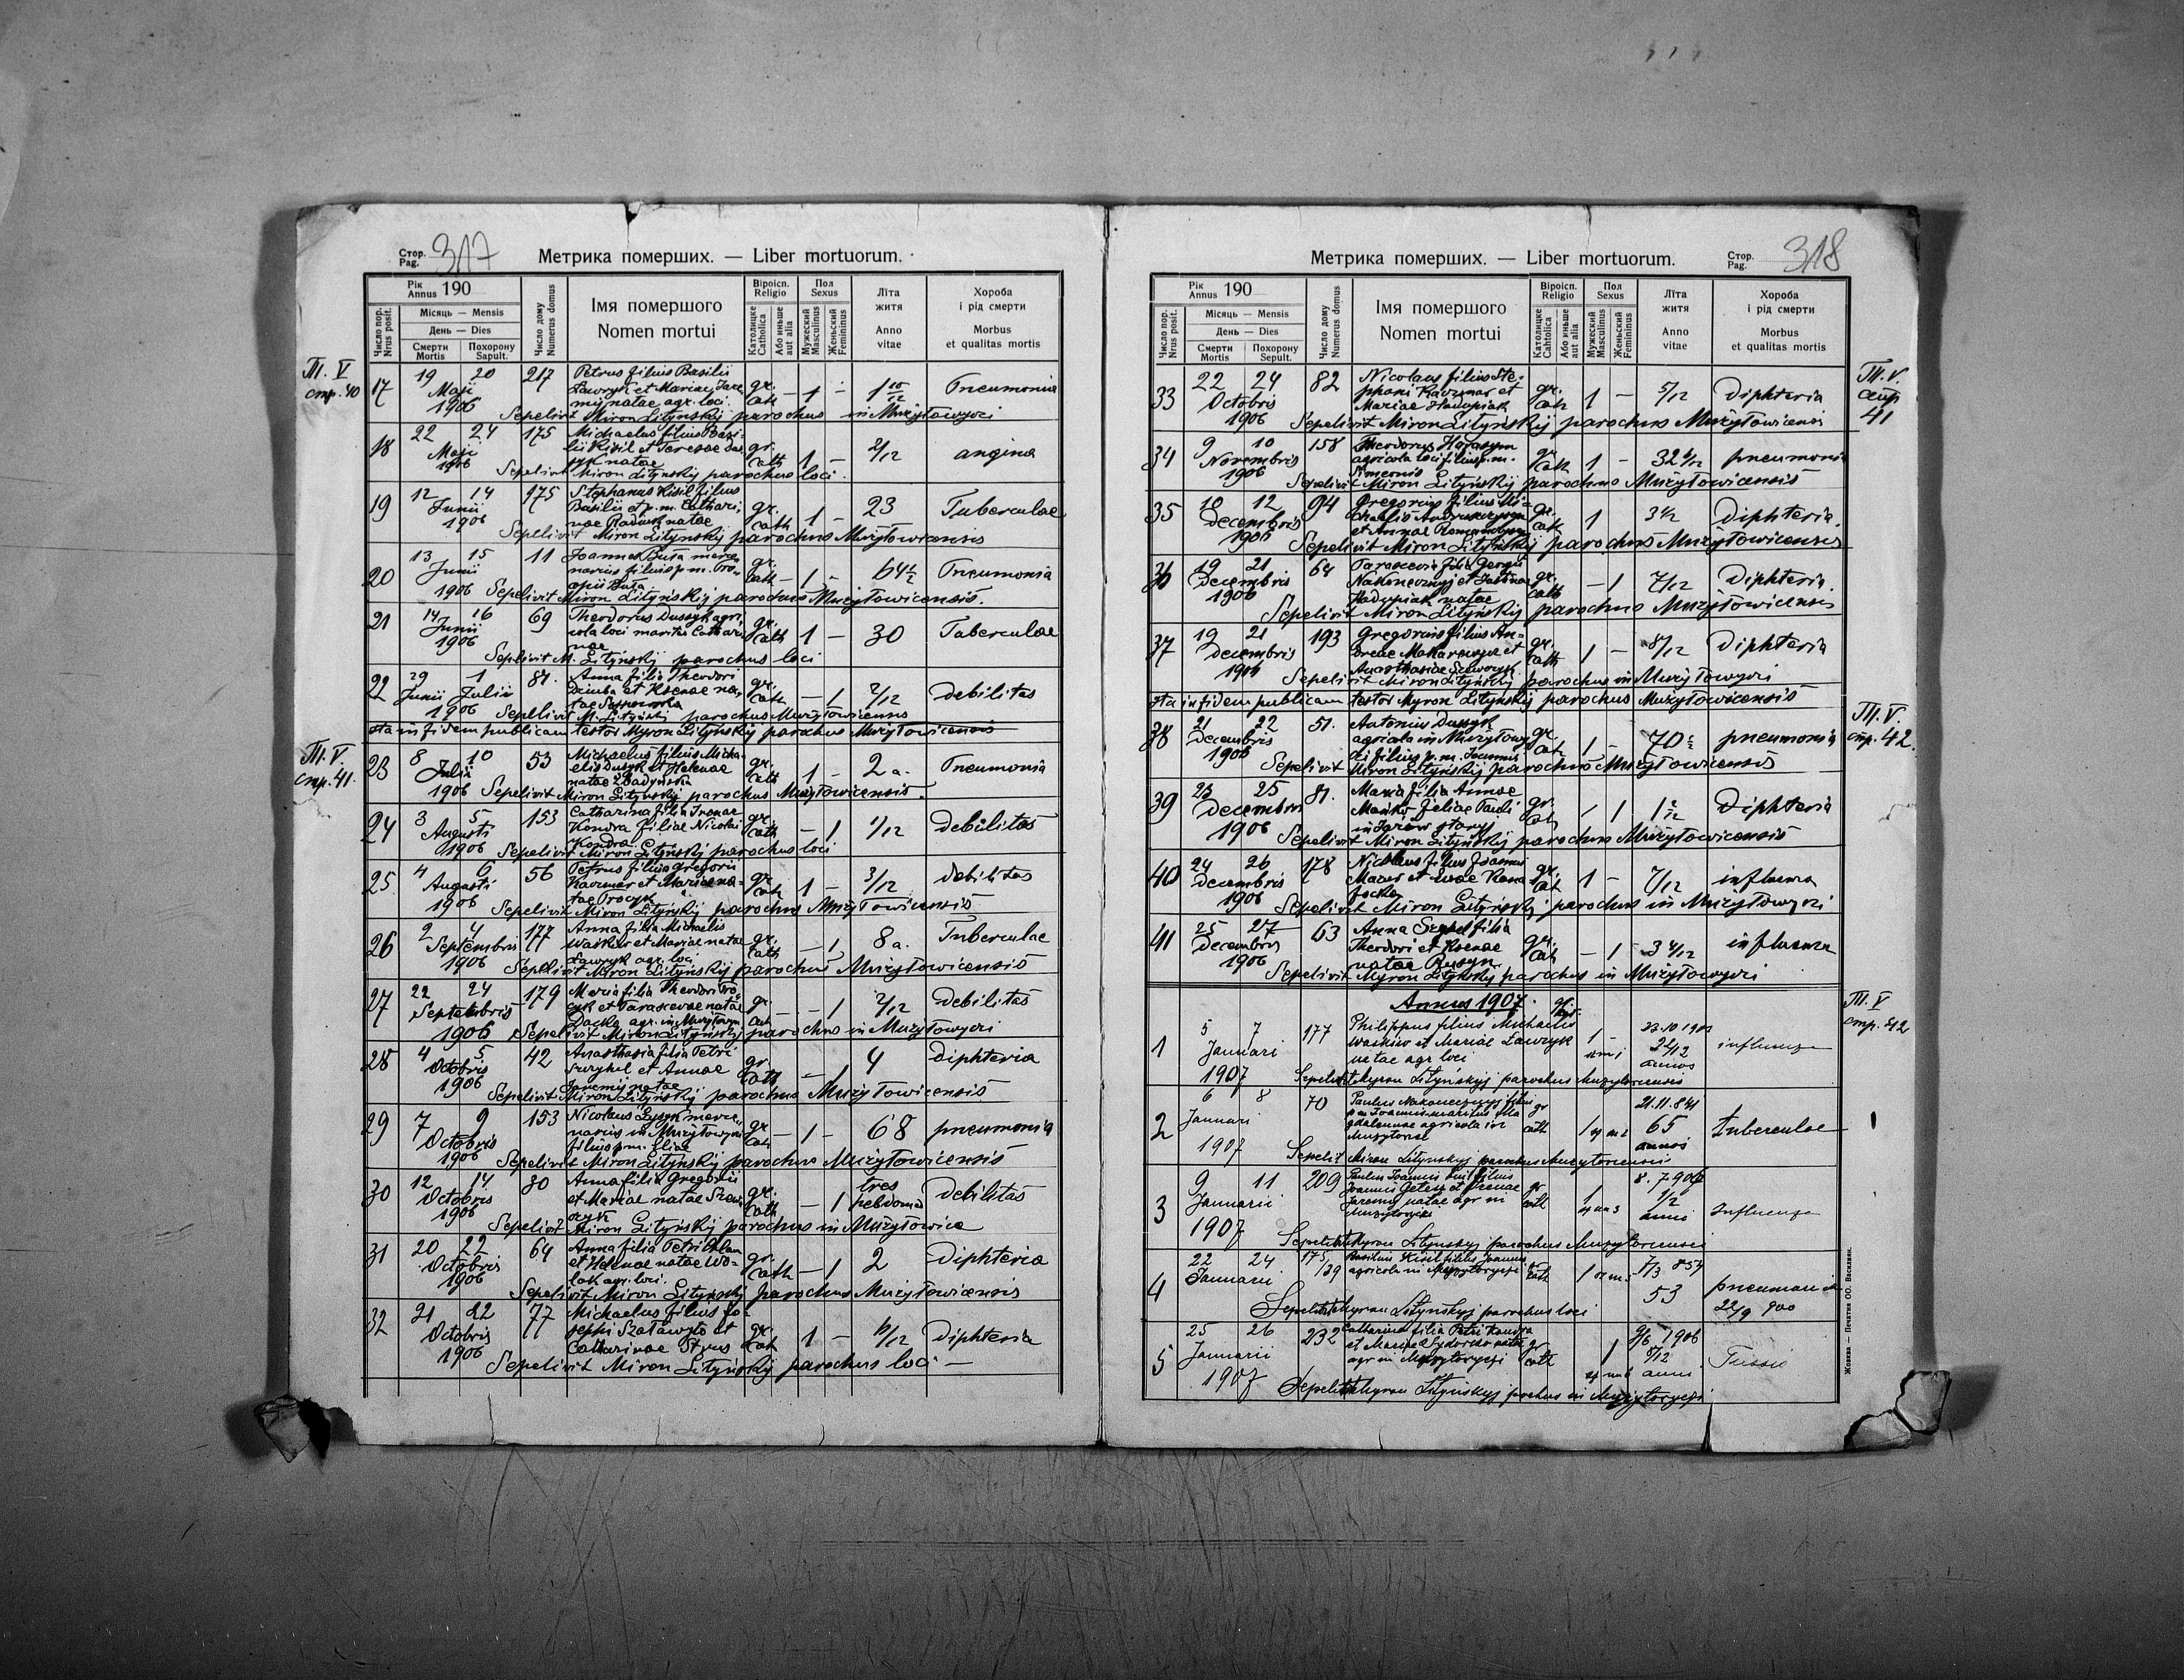 Стор. Pag. 317
Метрика померших. — Liber mortuorum.
Рік Annus 190
Число пор. Nrus posit.
Місяць — Mensis
День — Dies
Смерти Mortis
Похорону Sapult.
Число дому Numerus domus
Імя помершого
Nomen mortui
Віроісп. Religio
Католицке Catholica
Або иньше aut alia
Пол Sexus
Мужеский Masculinus
Женьский Femininus
Літа житя
Anno vitae
Хороба і рід смерти
Morbus et qualitas mortis
Т. V стр. 40
17 19 20 Maji 1906 217 Petrus filius Basilii
Lawryk et Mariae Jare
mij natae agr. loci. gr. cath — 1 — 1 10/12 Pneumonia
Sepelivit Miron Lityńskij parochus in Mużyłowyci
18 22 24 Maji 1906 175 Michaelus filius Basi
lii Kisil et Teresae
natae gr. cath 1 — 2/12 angina
Sepelivit Miron Lityńskij parochus loci.
19 12 14 Junii 1906 175 Stephanus Kisil filius
Basilii et p. m. Cathari,
nae natae gr. cath 1 — 23 Tuberculae
Sepelivit Miron Lityńskij parochus Mużyłowicensis
20 13 15 Junii 1906 11 Joannes Buta merce
narius filius p. m. Pro
Buta gr. cath — 1 — 64 1/2 Pneumonia
Sepelivit Miron Lityńskij parochus Mużyłowicensis.
21 14 16 Junii 1906 69 Theodorus Dussyk agri,
cola loci maritus Cathari
nae gr. cath 1 — 30 Tuberculae
Sepelivit M. Lityńskij parochus loci
22 29 1 Junii Julii 1906 81. Anna filia Theodori
Dziuba et Ksenae na,
tae gr. cath — 1 2/12 debilitas
Sepelivit M. Lityńskij parochus Mużyłowicensis
sta in fidem publicam testor Myron Lityńskij parochus Mużyłowicensis
Т. V. стр. 41.
23 8 10 Julii 1906 53 Michaelus filius Micha
elis Dusyk et Helenae
natae gr. cath 1 — 2 a. Pneumonia
Sepelivit Miron Lityńskij parochus Mużyłowicensis.
24 3 5 Augusti 1906 153 Catharina filia Irenae
Kondra filiae Nicolai
Kondra gr. cath — 1 1/12 debilitas
Sepelivit Miron Lityńskij parochus loci
25 4 6 Augusti 1906 56 Petrus filius Gregorii
Kaczmar et Mariae na-
tae Procyk gr. cath 1 — 3/12 debilitas
Sepelivit Miron Lityńskij parochus Mużyłowicensis
26 2 4 Septembris 1906 177 Anna filia Michaelis
Waśkiw et Mariae natae
Lawryk agr. loci gr. cath — 1 8 a. Tuberculae
Sepelivit Miron Lityńskij parochus Mużyłowicensis
27 22 24 Septembris 1906 179 Maria filia Theodori Pro
cyk et Parascevae natae
Dacko agr. in gr. cath — 1 2/12 debilitas
Sepelivit Miron Lityńskij parochus in Mużyłowyci
28 4 5 Octobris 1906 42 Anasthasia filia Petri
et Annae
Jaremij natae gr. cath — 1 4 diphteria
Sepelivit Miron Lityńskij parochus Mużyłowicensis
29 7 9 Octobris 1906 153 Nicolaus Lysyk merce,
narius in Mużyłowyci
filius p. m. Eliae gr. cath — 1 — 68 pneumonia
Sepelivit Miron Lityńskij parochus Mużyłowicensis
30 12 14 Octobris 1906 30 Anna filia Gregorii
et Mariae natae Szew,
czyk gr. cath — 1 tres hebdomas debilitas
Sepelivit Miron Lityńskij parochus in Mużyłowice
31 20 22 Octobris 1906 64 Anna filia Petri
et Helenae natae Wo-
lak agr. loci. gr. cath — 1 2 diphteria
Sepelivit Miron Lityńskij parochus Mużyłowicensis
32 21 22 Octobris 1906 77 Michaelus filius Jo-
sephi et
Catharinae Strus gr. cath 1 — 10/12 diphteria
Sepelivit Miron Lityńskij parochus loci —
Метрика померших. — Liber mortuorum.
Стор. Pag. 318
Рік Annus 190
Число пор. Nrus posit.
Місяць — Mensis
День — Dies
Смерти Mortis
Похорону Sapult.
Число дому Numerus domus
Імя помершого
Nomen mortui
Віроісп. Religio
Католицке Cahtolica
Або иньше aut alia
Пол Sexus
Мужеский Masculinus
Женьский Femininus
Літа житя
Anno vitae
Хороба і рід смерти
Morbus et qualitas mortis
Т. V. стр 41
33 22 24 Octobris 1906 82 Nicolaus filius Ste-
phani Kaczmar et
Mariae Hadupiak gr. cath 1 — 5/12 diphteria
Sepelivit Miron Lityńskij parochus Mużyłowicensis
34 9 10 Novembris 1906 158 Theodorus Harasym
agricola loci filius p. m.
Simeonis gr. cath 1 — 32 pneumonia
Sepelivit Miron Lityńskij parochus Mużyłowicensis
35 10 12 Decembris 1906 94 Gregorius filius Mi-
chaelis
et Annae gr. cath 1 3 1/2 diphteria.
Sepelivit Miron Lityńskij parochus Mużyłowicensis
36 19 21 Decembris 1906 64 Parascevia filia Georgii
Nakonecznyj et Justinae
Hadupiak natae gr. cath — 1 7/12 diphteria
Sepelivit Miron Lityńskij parochus Mużyłowicensis
37 19 21 Decembris 1906 193 Gregorius filius An-
dreae Makarewycz et
Anasthasiae Szewczyk gr. cath 1 — 8/12 diphteria
Sepelivit Miron Lityńskij parochus in Mużyłowyci
sta in fidem publicam testor Myron Lityńskij parochus Mużyłowicensis
Т. V. стр. 42.
38 21 22 Decembris 1906 51. Antonius Dussyk
agricola in Mużyłowy
ci filius p. m. Joannis gr. cat. 1 — 70 pneumonia
Sepelivit Miron Lityńskij parochus Mużyłowicensis
39 23 25 Decembris 1906 81. Maria filia Annae
Mańko filiae Pauli
in Jazów staryj gr. cat. — 1 1 diphteria
Sepelivit Miron Lityńskij parochus Mużyłowicensis
40 24 26 Decembris 1906 178 Nicolaus filius Joannis
Mazur et Evae gr. cat 1 — 7/12 influenza
Sepelivit Miron Lityńskij parochus in Mużyłowyci
41 25 27 Decembris 1906 63 Anna filia
Theodori et Ksenae
natae Rusyn gr. cat — 1 3 4/12 influenza
Sepelivit Myron Lityńskij parochus in Mużyłowyci
Annus 1907.
Т. V стр. 42
1 5 7 Januari 1907 177 Philippus filius Michaelis
Waskiw et Mariae Lawryk
natae agr loci 1 — annos influenza
Sepelivit Myron Lityńskyj parochus Muzyloviensis
2 6 8 Januari 1907 70 Paulus Nakonecznyj filius
p m Joannis maritus Ma
gdalenae agricola in gr cath 1 21.11.841 65 annos tuberculae
Sepelit Miron Lityńskyj parochus Muzyloviensis
3 9 11 Januarii 1907 209
Joannis et
Jaremij natae agr in gr cath 1 8. 7 906 1/2 anni Influenza
Sepelivit Myron Lityńskyj parochus Muzyloviensis
4 22 24 Januarii 1907 175/29 Basilius Kisil filius Joannis
agricola in gr cath 1 53 pneumonia
Sepelivit Myron Lityńskyj parochus loci
5 25 26 Januarii 1907 232 Catharina filia Petri Kondra
et Mariae natae
agr in gr cath 1 9/6 1906 anni Tussis
Sepelivit Myron Lityńskyj in
Жовква — Печатня ОО. Василиян.